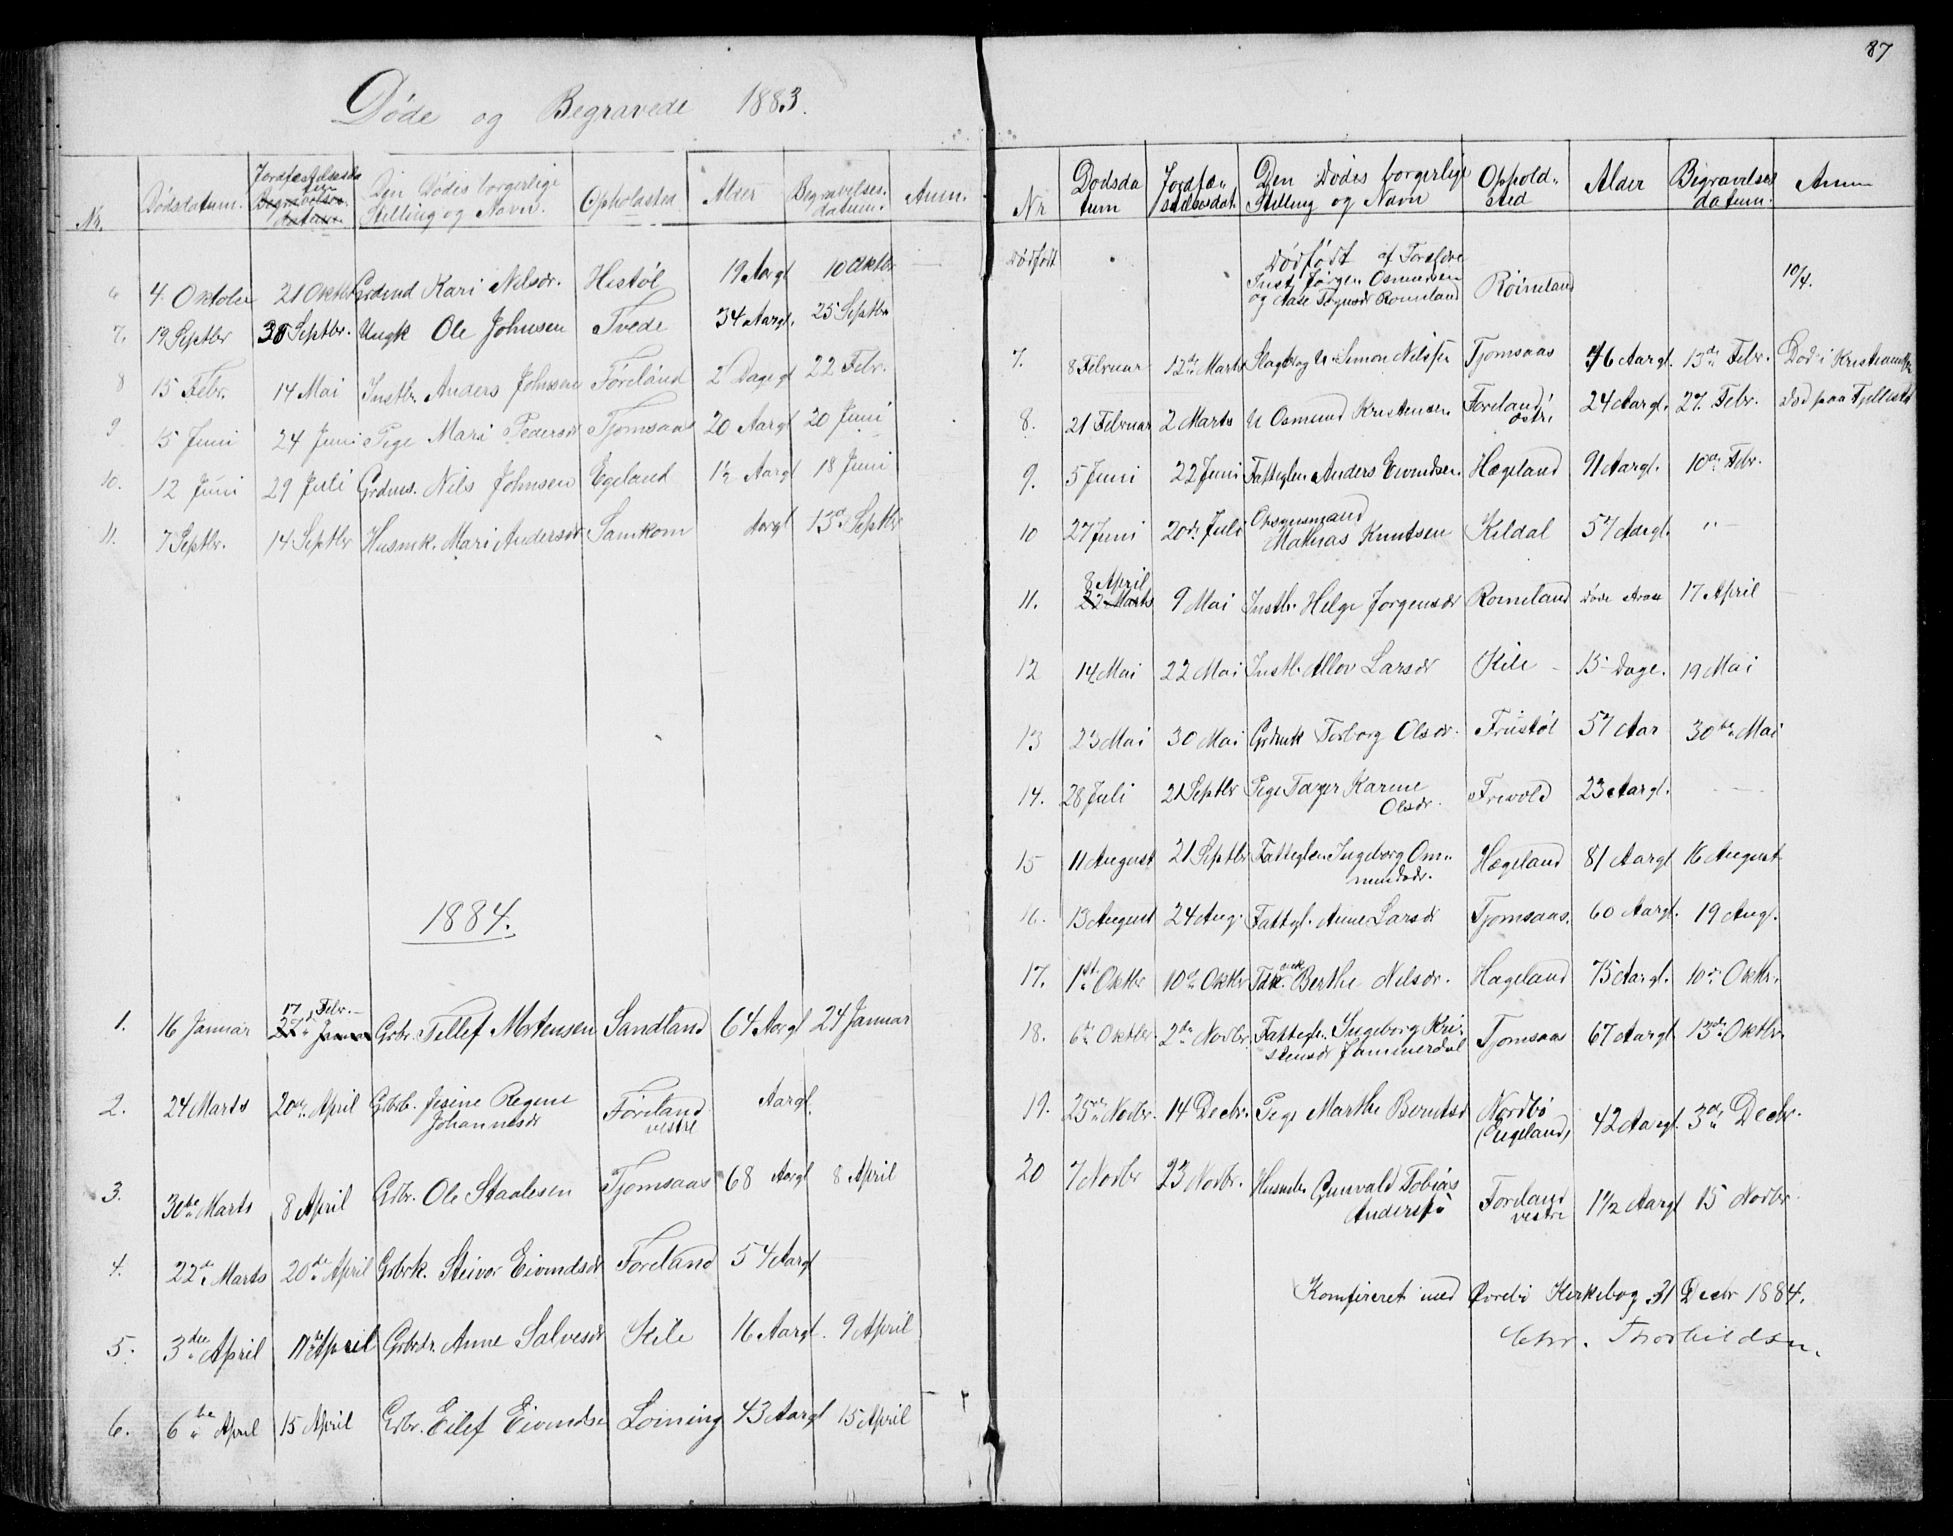 87
Døde og Begravede 1883.
Nr. Dødsdatum. Jordfæstelsesdatum Begravelsesdatum Den Dødes borgerlige Stilling og Navn. Opholdsted Alder Begravelsesdatum. Anm.
6 4. Oktober 21 Oktbr Kari Nilsdr. Hestøl 19 Aargl 10 Oktbr
7. 19 Septbr 30 Septbr. Ungk Ole Johnsen Tvede 34 Aargl. 25 Septbr
8 15 Febr. 14 Mai Instb. Anders Johnsen Føreland 2 Dage gl 22 Febr.
9 15 Juni 24 Juni Pige Mari Pedersdr Tjomsaas 20 Aargl 20 Juni
10. 12 Juni 29 Juli Grdms. Nils Johnsen Egeland 1½ Aargl 18 Juni
11. 7 Septbr. 14 Septbr Husmk. Mari Andersdr Samkom Aargl 13de Septbr
1884.
1. 16 Januar 17 Febr. 22de Januar Grbr. Tellef Mortensen Sandland 64 Aargl 24 Januar
2. 24 Marts 20de April Grbrb. Jesine Regine Aargl.
Johannesdr Føreland vestre
3. 30te Marts 8 April Grbr. Ole Staalesen Tjomsaas 68 Aargl 8 April
4. 22de Marts 20de April Grbrk. Steivor Eivindsdr Foreland 54 Aargl
5. 3die April 11te April Grbrdr. Anne Salvesdr Kile 16 Aargl. 9 April
6. 6te April 15 April Grbr. Eilef Eivindsen Loining 43 Aargl 15 April
Nr Dodsdatum Jordfæstelsesdat. Den Dødes borgerlige Stilling og Navn Oppholdsted Alder Begravelsesdatum. Anm
Dødfødt Dødfødt af Foreldre
Inst. Jørgen Osmundsen Røineland 10/4.
og Aase Romeland
7. 8 Februar 12te Marts Simon Nilssen Tjomsaas 46 Aargl. 13de Febr. Død i
8. 21 Februar 2 Marts U Osmund Kristensen Foreland østre 24 Aargl. 27. Febr. Død paa
9. 5 Juni 22 Juni Fattiglem Anders Eivindsen Hægeland 91 Aargl. 10de Febr.
10 27 Juni 20de Juli Opsynsmand
Mathias Knutsen Kildal 57 Aargl. "
11. 8 April 22 Marts 9 Mai Instb. Helge Jorgensdr Romeland 17 April
12 14 Mai 22 Mai Instb. Allov Larsdr Kile 15 Dage. 19 Mai
13 23 Mai 30 Mai Grdmk Torborg Olsdr. Frustøl 57 Aar 30te Mai
14. 28 Juli 21 Septbr Pige Karine
Olsdr. Frivold 23 Aargl.
15 11 August 21 Septbr Fattiglem Ingeborg Om-
mundsdr. Hægeland 81 Aargl 16 August
16. 13 August 24 Aug. Fattgl. Anne Larsdr Tjomsaas. 60 Aargl. 19 Aug.
17. 1st Oktbr 10de Oktbr Berthe Nilsdr. Hægeland 75 Aargl. 10de Oktbr.
18. 6te Oktbr 2de Novbr. Fattiglm. Ingeborg Kri-
stensdr Jammerdal Tjomsaas 67 Aargl. 13de Oktbr.
19. 25de Novbr. 14 Decbr. Pige Marthe Berntsd Nordbø (Eigeland) 42 Aargl. 3de Decbr.
20 7 Novbr 23 Novbr. Gunvald Tobias
Anderssen Foreland vestre 1½ Aargl 15 Novbr
Komfireret med Øvrebø Kirkebog 31 Decbr 1884.
Chr. Thorkildsen.